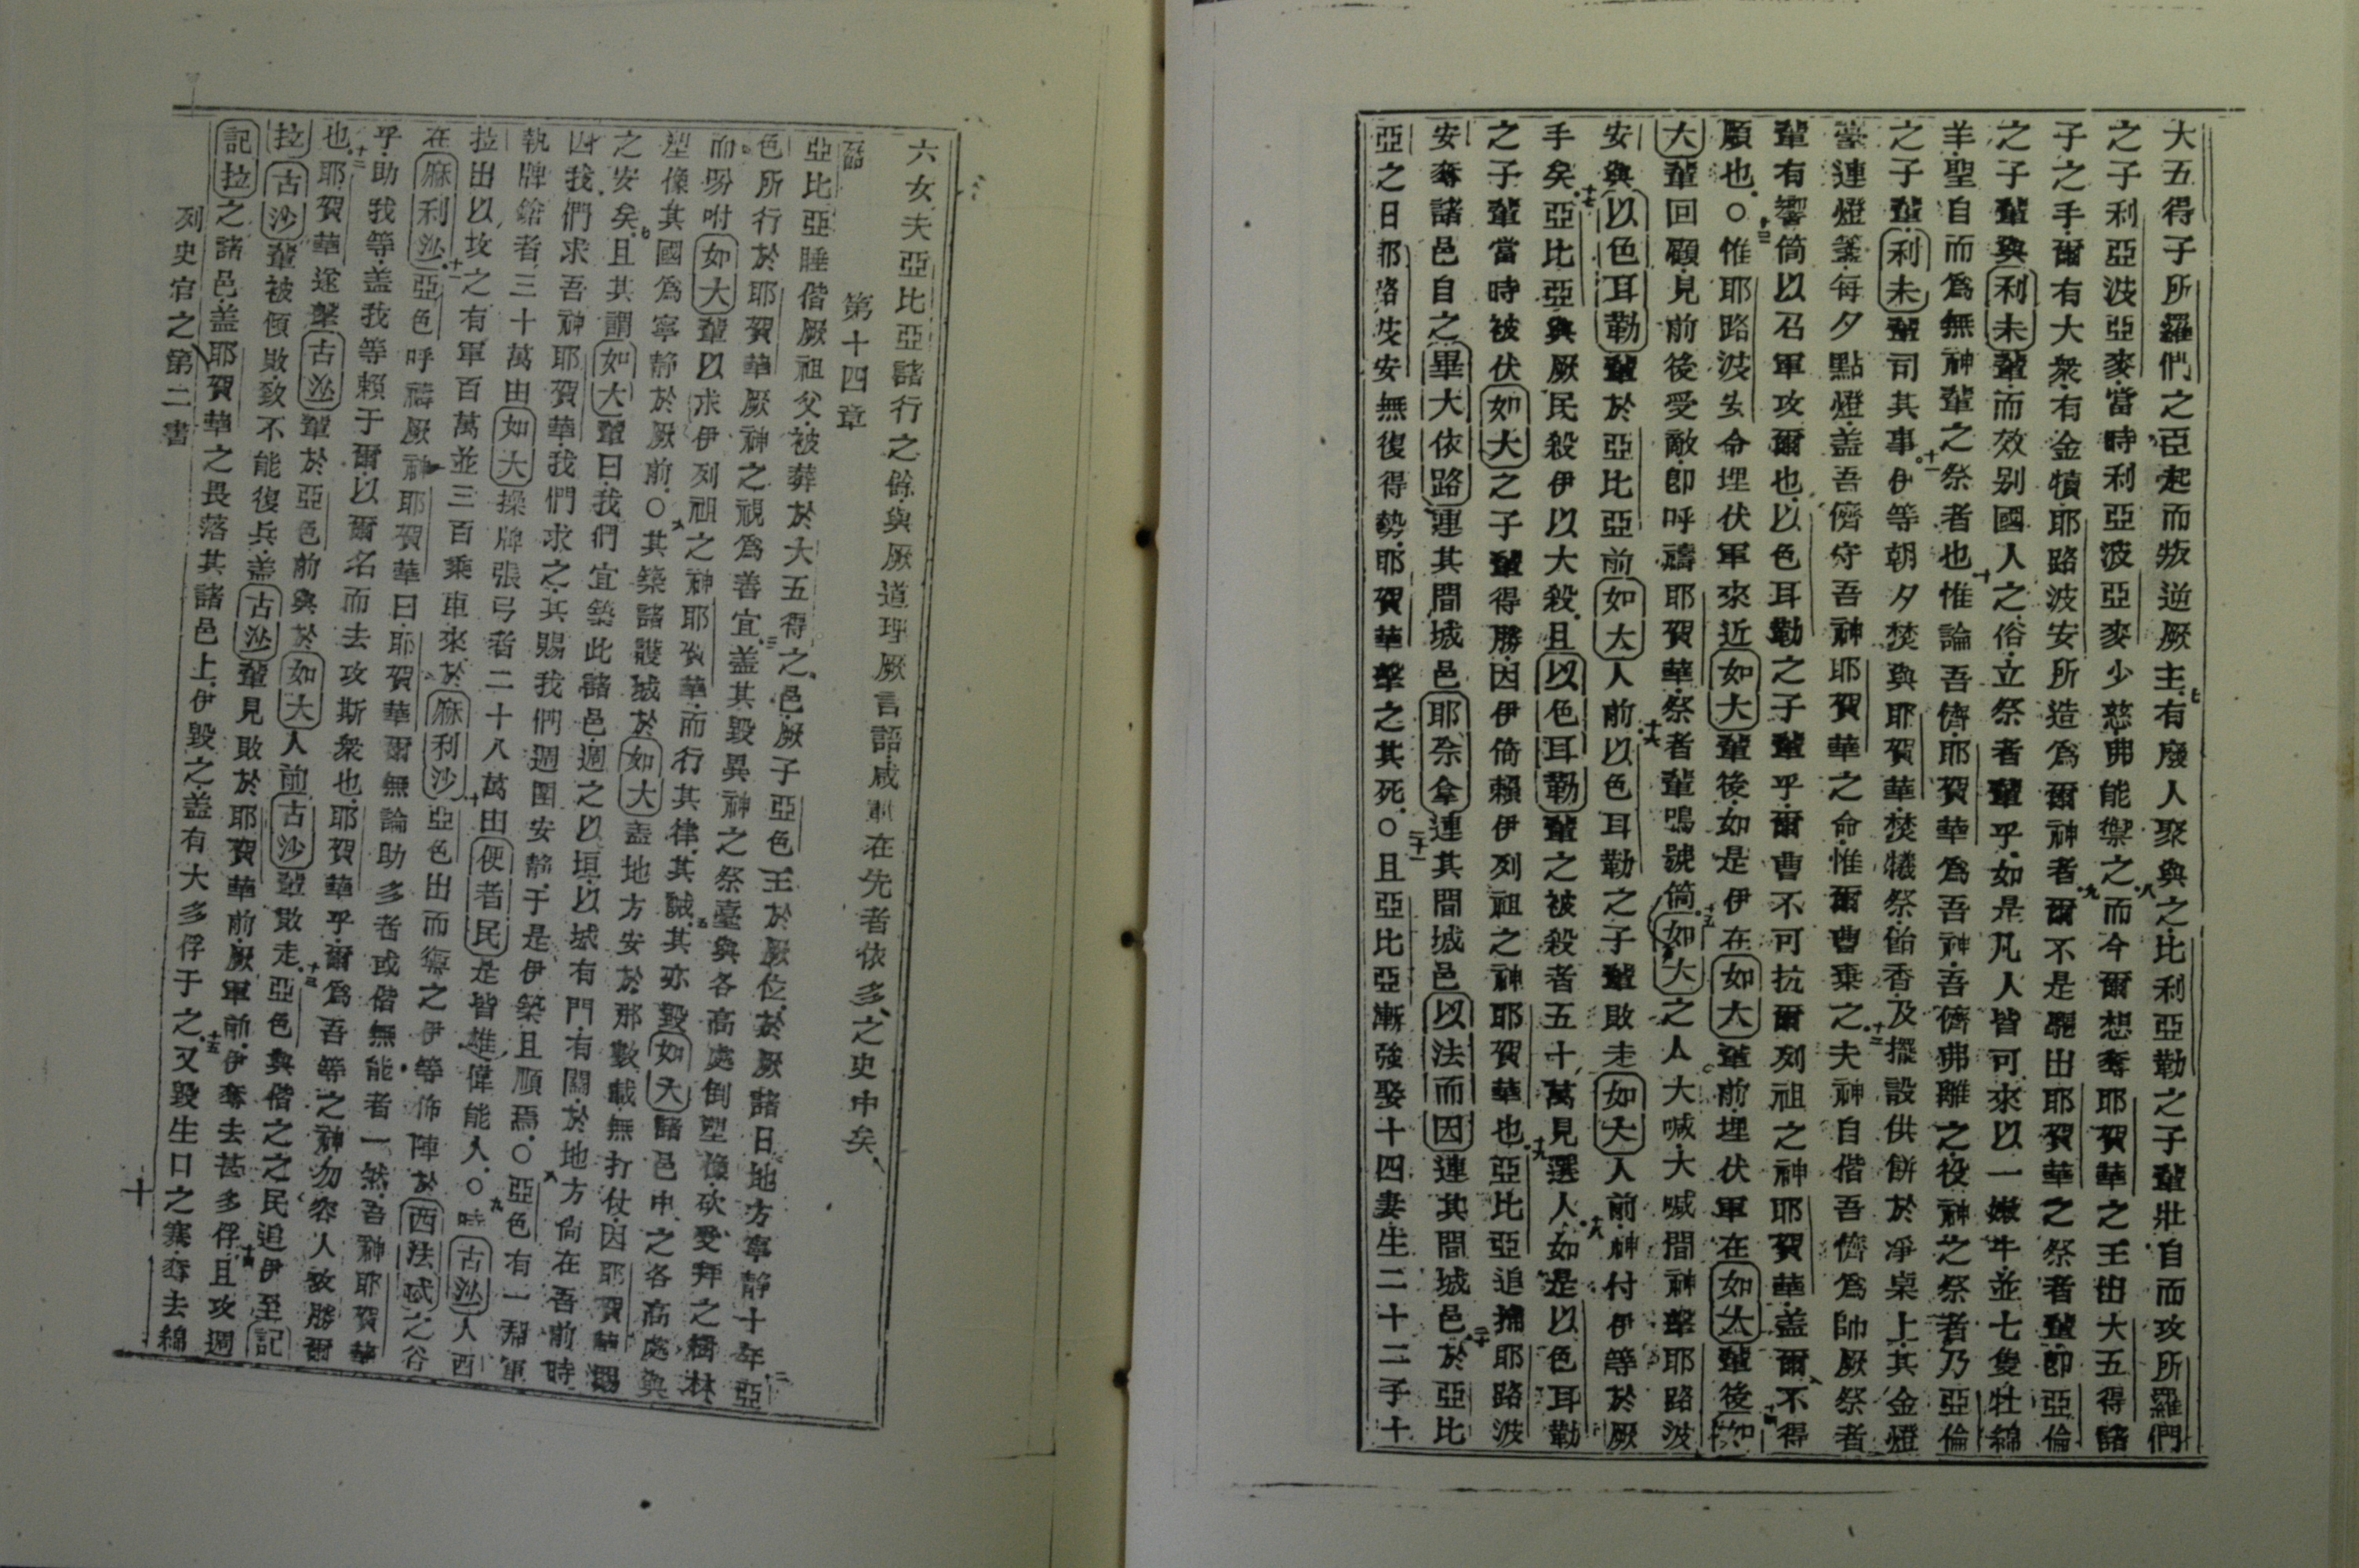 大五得子所羅們之臣起而叛逆厥主七有廢人聚與之比利亞勒之子輩壯自而攻所羅們
之子利亞波亞麥當時利亞波亞麥少慈弗能禦之八而今爾想奪耶賀華之王由大五得諸
子之手爾有大衆有金犢耶路波安所造爲爾神者九爾不是驅出耶賀華之祭者輩卽亞倫
之子輩與利未輩而效别國人之俗立祭者輩乎如是凡人皆可來以一嫩牛並七隻牡綿
羊聖自而爲無神輩之祭者也十惟論吾儕耶賀華爲吾神吾儕弗離之役神之祭者乃亞倫
之子輩利未輩司其事十一伊等朝夕焚與耶賀華焚犧祭飴香及擺設供餅於凈桌上其金燈
臺連燈盞每夕點燈盖吾儕守吾神耶賀華之命惟爾曹棄之十二夫神自偕吾儕爲帥厥祭者
輩有響筒以召軍攻爾也以色耳勒之子輩乎爾曹不可抗爾列祖之神耶賀華盖爾不得
順也○十三惟耶路波安命埋伏軍來近如大輩後如是伊在如大輩前埋伏軍在如大輩後十四如
大輩回顧見前後受敵卽呼禱耶賀華祭者輩鳴號筒十五如大之人大喊大喊間神擊耶路波
安與以色耳勒輩於亞比亞前如大人前十六以色耳勒之子輩敗走如大人前神付伊等於厥
手矣十七亞比亞與厥民殺伊以大殺且以色耳勒輩之被殺者五十萬見選人十八如是以色耳勒
之子輩當時被伏如大之子輩得勝因伊倚賴伊列祖之神耶賀華也十九亞比亞追捕耶路波
安奪諸邑自之畢大依路連其間城邑耶奈拿連其間城邑以法而因連其間城邑二十於亞比
亞之日耶路波安無復得勢耶賀華擊之其死○二十一且亞比亞漸強娶十四妻生二十二子十
六女夫亞比亞諸行之餘與厥道理厥言語咸載在先者依多之史中矣
第十四章
亞比亞睡偕厥祖父被葬於大五得之邑厥子亞色王於厥位於厥諸日地方寧靜十年二亞
色所行於耶賀華厥神之視爲善宜三盖其毀異神之祭臺與各高處倒塑像砍受拜之樹林
四而吩咐如大輩以求伊列祖之神耶賀華而行其律其誡五其亦毀如大諸邑中之各高處與
塑像其國爲寧靜於厥前○六其築諸護城於如大盖地方安於那數載無打仗因耶賀華賜
之安矣七且其謂如大輩曰我們宜築此諸邑週之以垣以城有門有關於地方尙在吾前時
因我們求吾神耶賀華我們求之其賜我們週圍安靜于是伊築且順焉○八亞色有一羣軍
執牌鎗者三十萬由如大操牌張弓者二十八萬由便者民是皆雄偉能人○九時古沙人西
拉出以攻之有軍百萬並三百乘車來於麻利沙十亞色出而禦之伊等佈陣於西法忒之谷
在麻利沙十一亞色呼禱厥神耶賀華曰耶賀華爾無論助多者或偕無能者一然吾神耶賀華
乎助我等盖我等賴于爾以爾名而去攻斯衆也耶賀華乎爾爲吾等之神勿容人致勝爾
也十二耶賀華遂擊古沙輩於亞色前與於如大人前古沙輩敗走十三亞色與偕之之民追伊至記
拉古沙輩被傾敗致不能復兵盖古沙輩見敗於耶賀華前厥軍前伊奪去甚多俘十四且攻週
記拉之諸邑盖耶賀華之畏落其諸邑上伊毀之盖有大多俘于之十五又毀生口之寨奪去綿
列史官之第二書
十